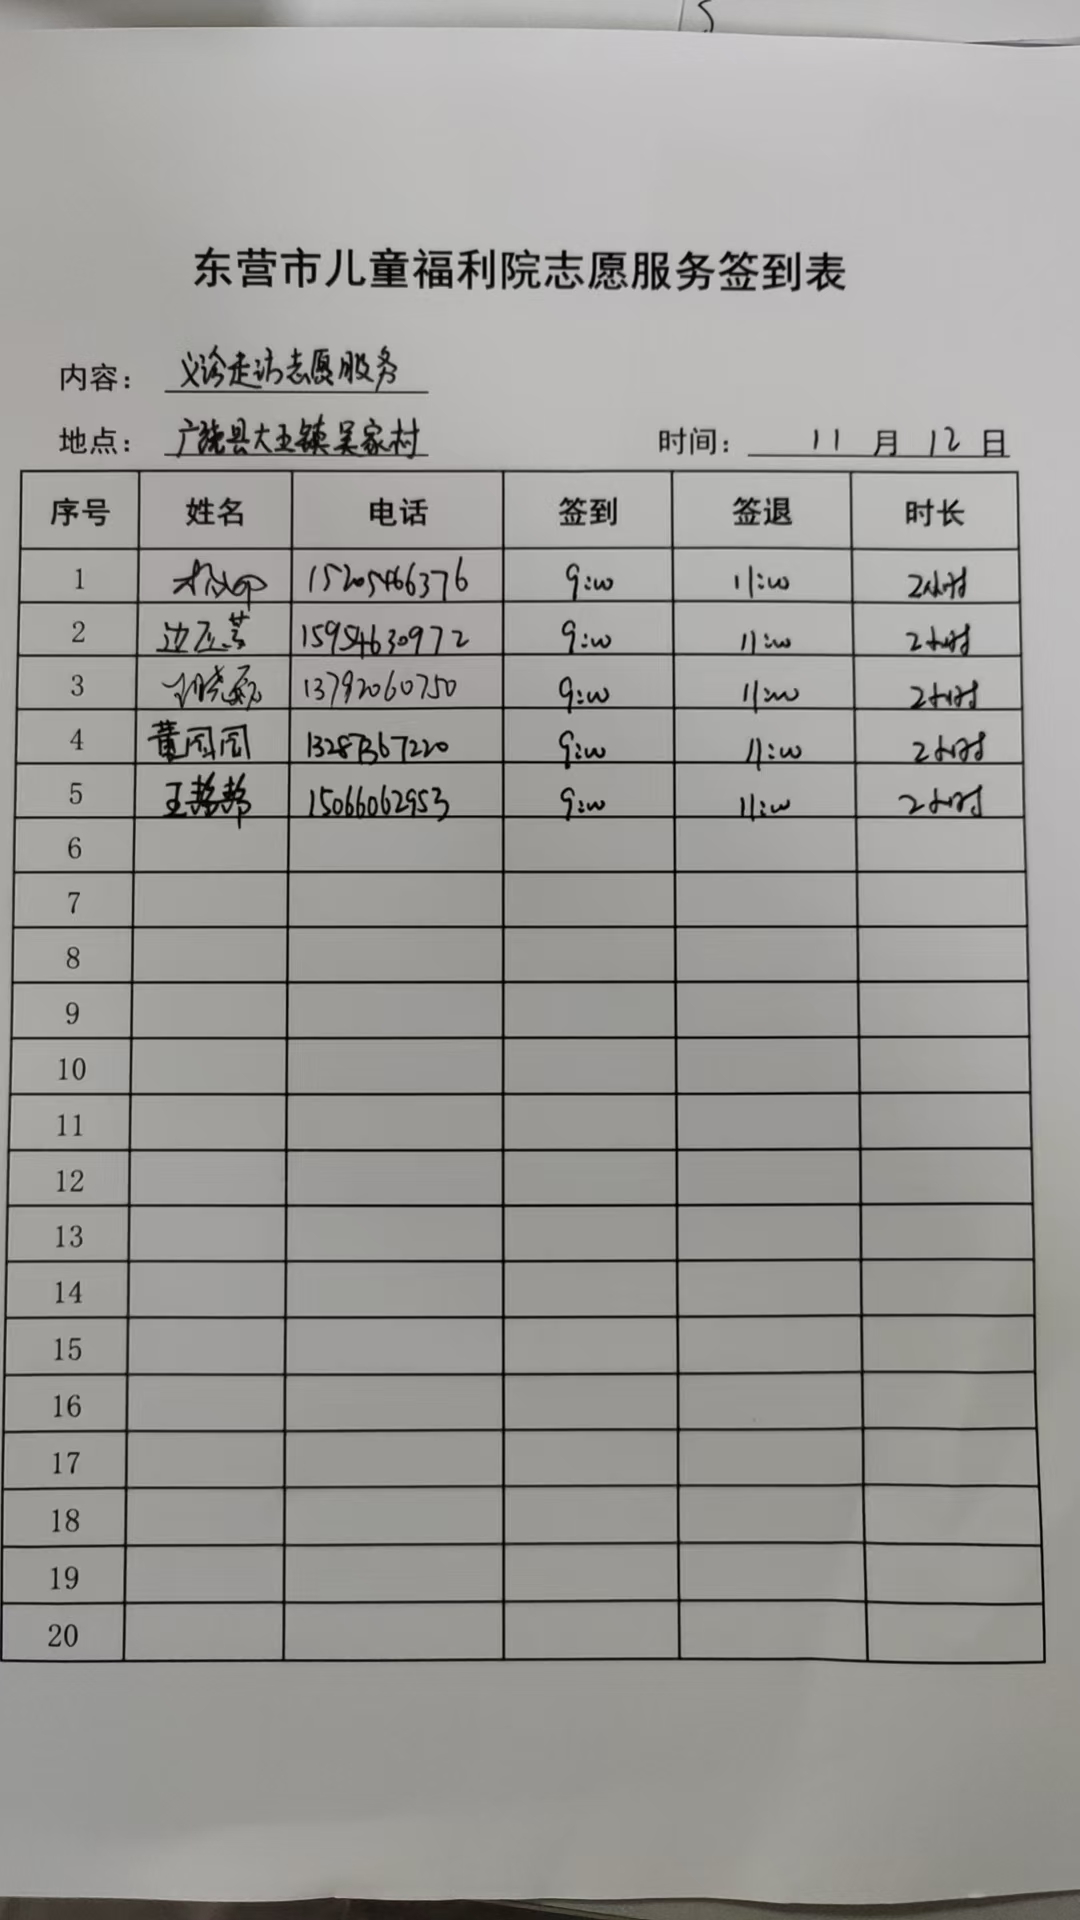 东营市儿童福利院志愿服务签到表
内容： 义诊走访志愿服务
地点： 广饶县大王镇吴家村 时间： 11 月 12 日
序号 姓名 电话 签到 签退 时长
1 15205466376 9:00 11:00 2小时
2 边 15954630972 9:00 11:00 2小时
3 13792060750 9:00 11:00 2小时
4 董圆圆 13287367220 9:00 11:00 2小时
5 王 15066062953 9:00 11:00 2小时
6
7
8
9
10
11
12
13
14
15
16
17
18
19
20